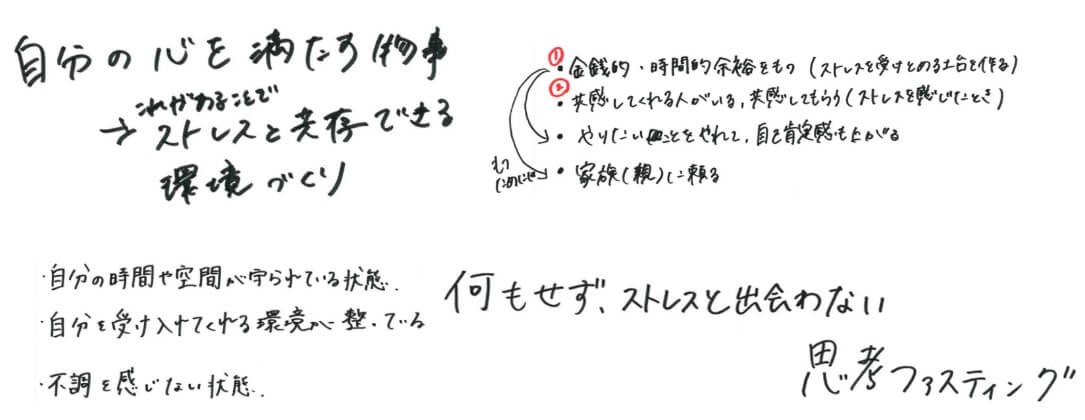 自分の心を満たす物事
これがあることで
→ストレスと共存できる
環境づくり
① ・金銭的・時間的余裕をもつ(ストレスを受けとめる土台を作る)
② ・共感してくれる人がいる,共感してもらう(ストレスを感じたとき)
・やりたいことをやれて,自己肯定感も上がる
もつ
ためには
・家族(親)に頼る
・自分の時間や空間が守られている状態.
・自分を受け入れてくれる環境が整っている
・不調を感じない状態.
何もせず、ストレスと出会わない
思考ファスティング